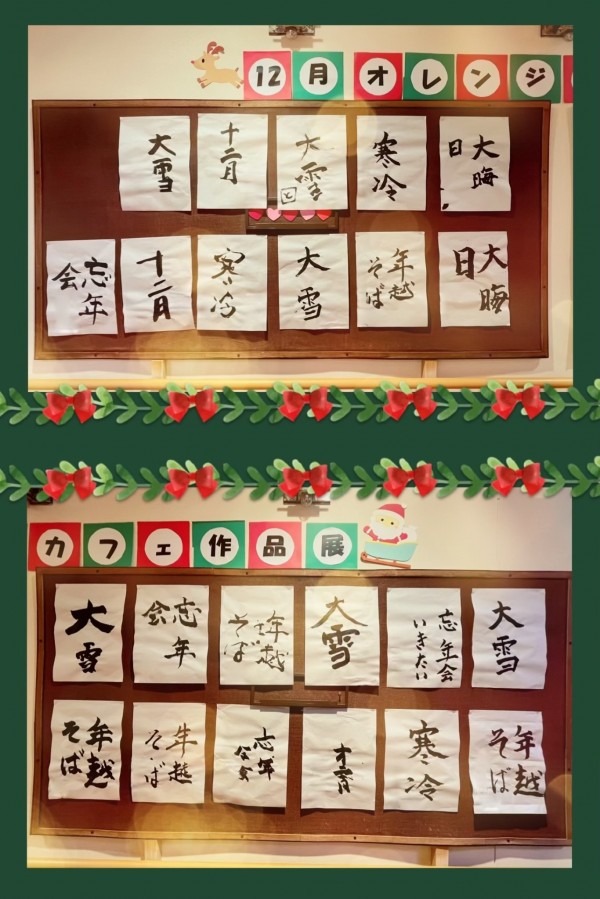 12月オレンジ
大雪
十二月
大雪
寒冷
大晦
日
忘年
会
十二月
寒冷
大雪
年越
そば
大晦
日
カフェ作品展
大雪
忘年
会
年越
そば
大雪
忘年会
いきたい
大雪
年越
そば
年越
そば
忘年
十二月
寒冷
年越
そば